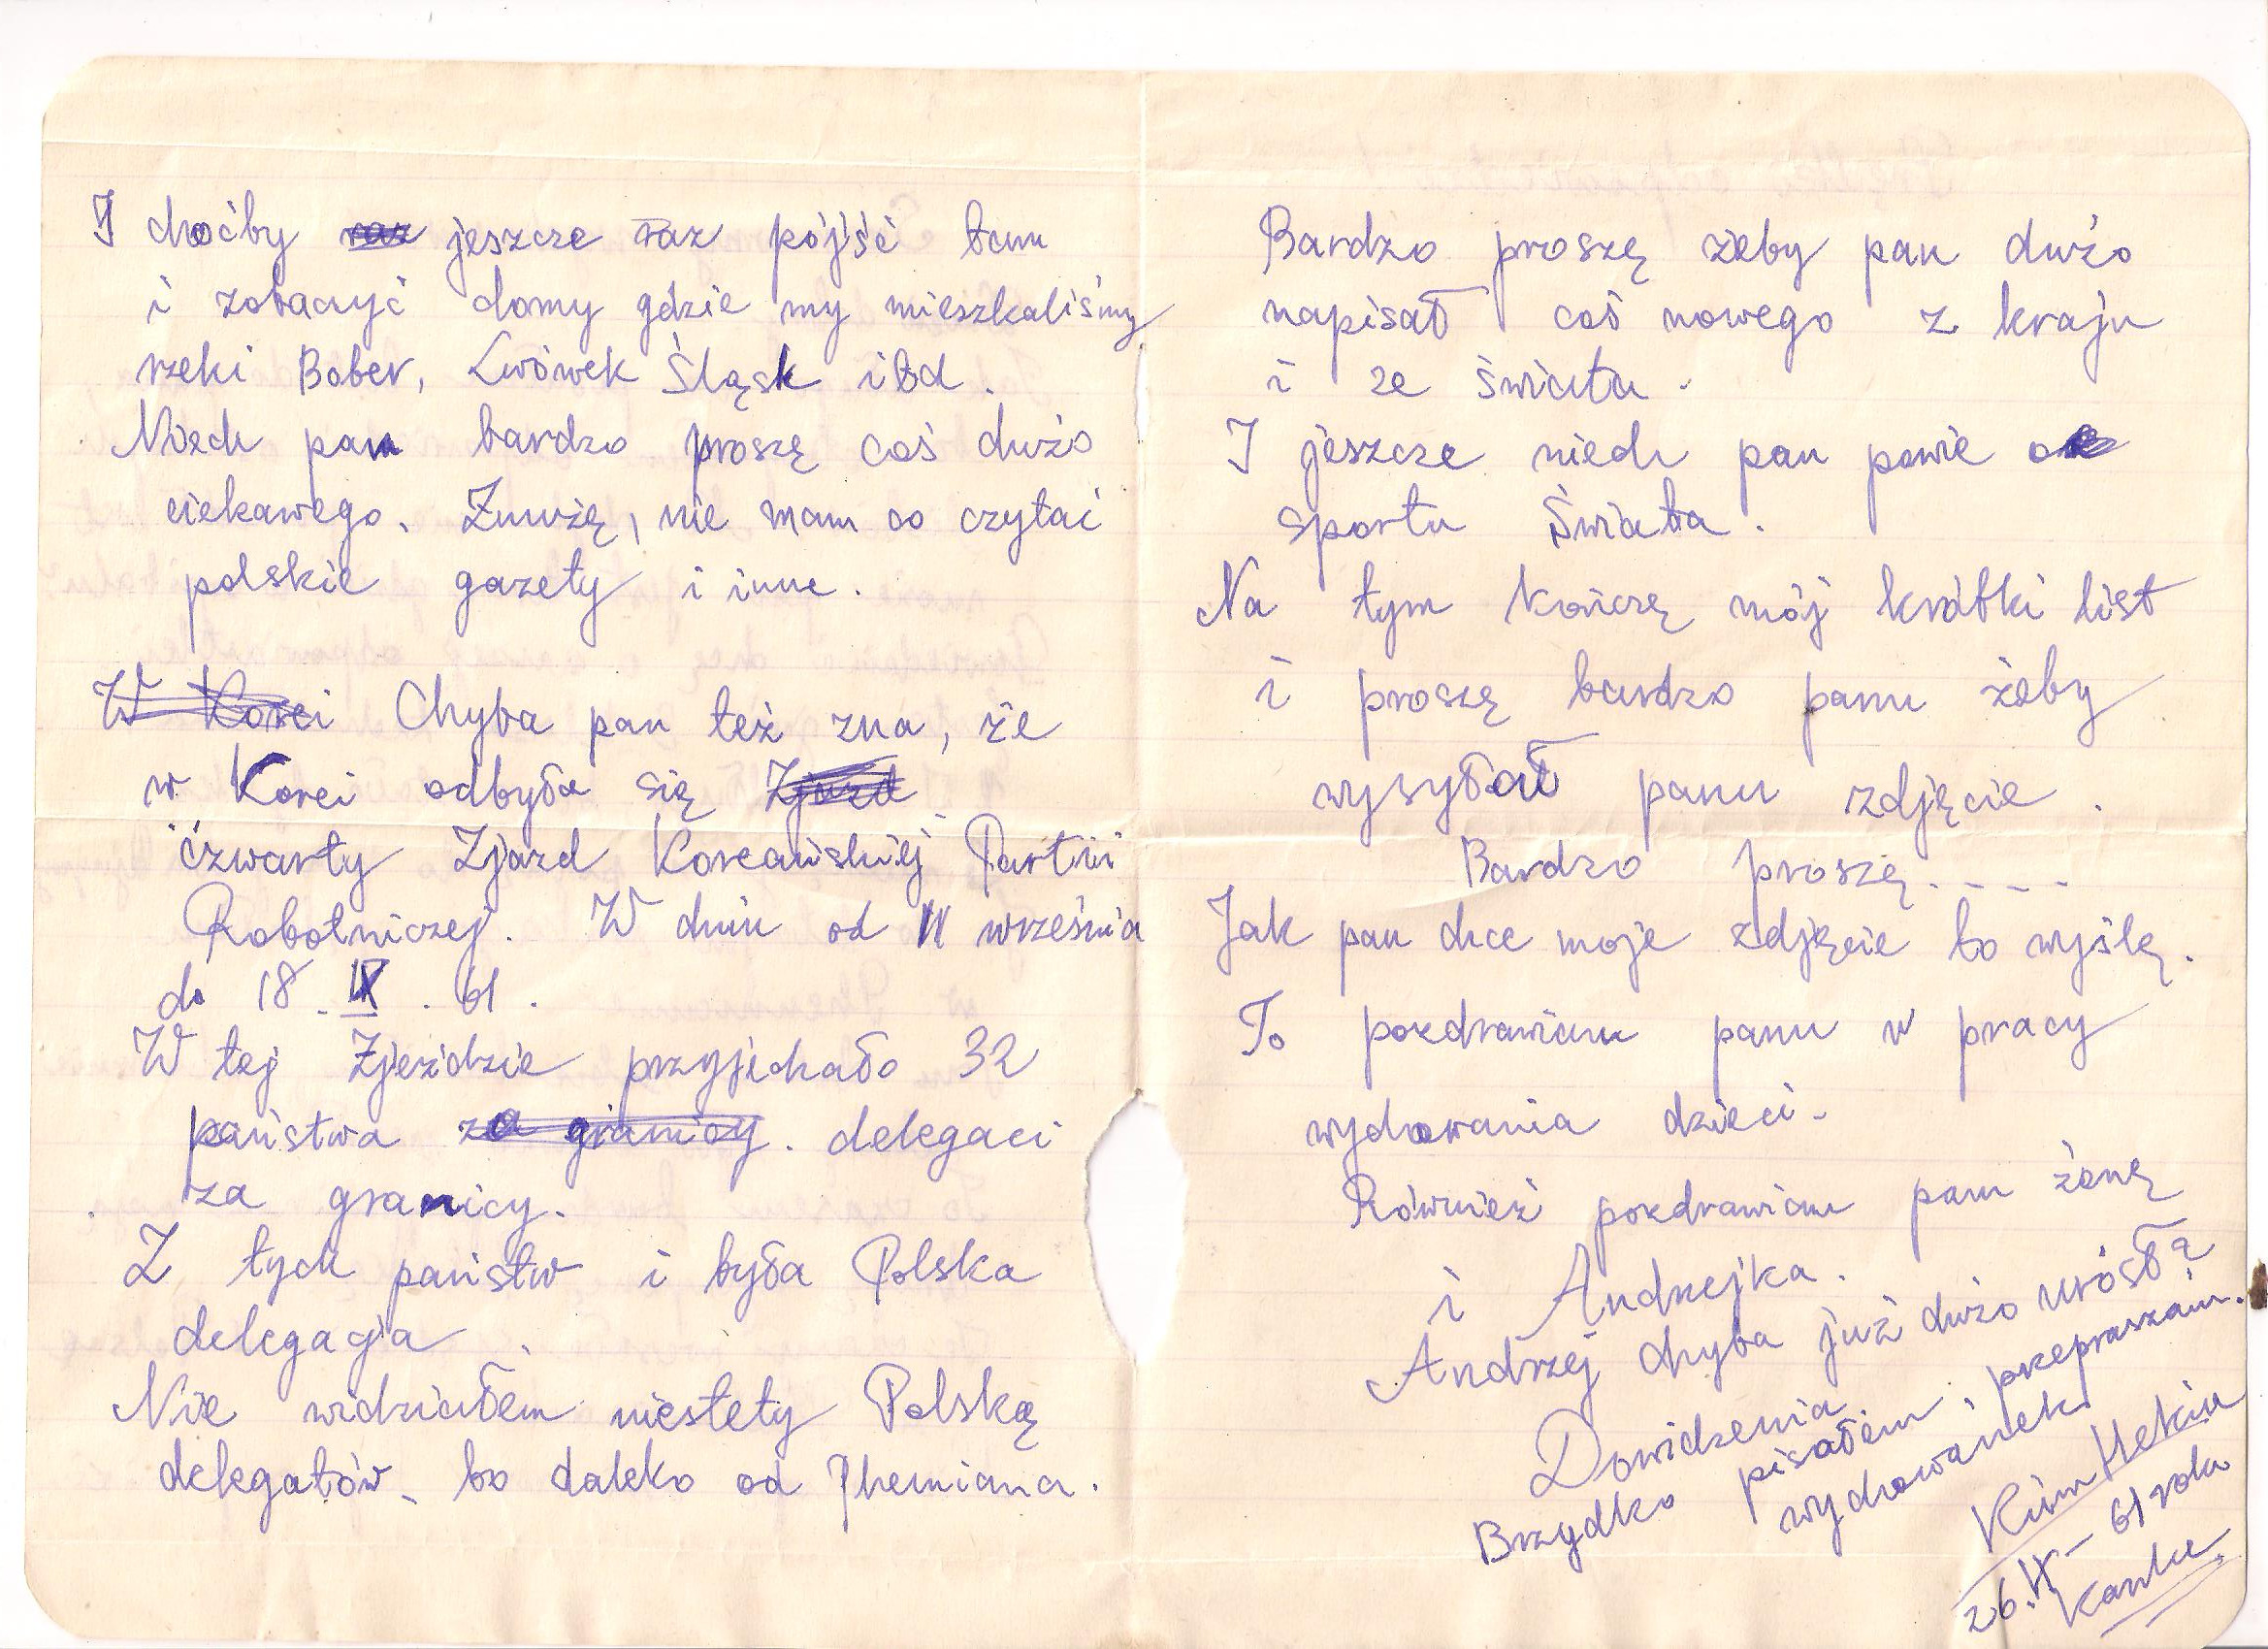 I choćby raz jeszcze raz pójść tam
i zobaczyć domy gdzie my mieszkaliśmy
rzeki Bober, Lwówek Śląsk itd.
Niech pan bardzo proszę coś dużo
ciekawego. Znużę, nie mam co czytać
polskie gazety i inne.
W Korei Chyba pan też zna, że
w Korei odbyła się Zjazd
czwarty Zjazd Koreańskiej Partii
Robotniczej. W dniu od 11 września
do 18. IX. 61.
W tej Zjeździe przyjechało 32
państwa za granicy. delegaci
za granicy.
Z tych państw i była Polska
delegacja.
Nie widziałem niestety Polską
delegatów, bo daleko od Pheniana.
Bardzo proszę żeby pan dużo
napisał coś nowego z kraju
i ze świata.
I jeszcze niech pan powie o
sportu Świata.
Na tym kończę mój krótki list
i proszę bardzo panu żeby
wysyłał panu zdjęcie.
Bardzo proszę.----
Jak pan chce moje zdjęcie to wyślę.
To pozdrawiam panu w pracy
wychowania dzieci.
Również pozdrawiam pani żonę
i Andrzejka.
Andrzej chyba już dużo urósł?
Dowidzenia.
Brzydko pisałem, przepraszam.
wychowanek
Kim
26. IX - 61 roku